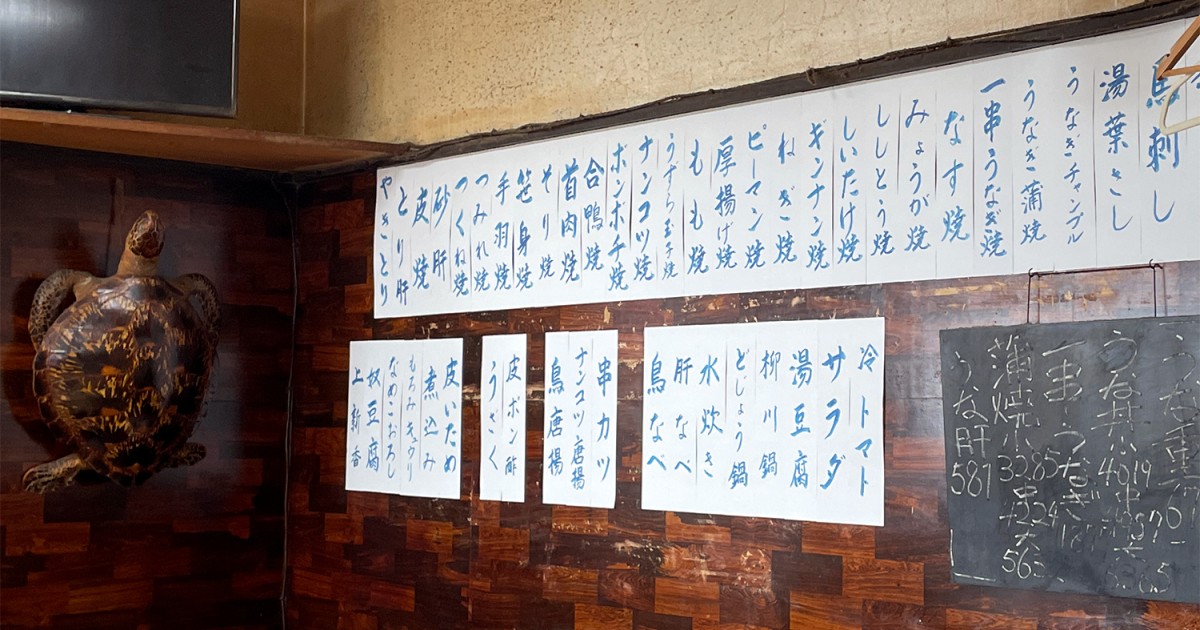 馬刺し
湯葉さし
うなぎチャンプル
うなぎ蒲焼
一串うなぎ焼
なす焼
みょうが焼
ししとう焼
しいたけ焼
ギンナン焼
ねぎ焼
ピーマン焼
厚揚げ焼
もも焼
うずら玉子焼
ナンコツ焼
ボンボチ焼
合鴨焼
首肉焼
そり焼
笹身焼
手羽焼
つみれ焼
つくね焼
砂肝
皮焼
とり肝
やきとり
冷トマト
サラダ
湯豆腐
柳川鍋
どじょう鍋
水炊き
肝なべ
鳥なべ
串カツ
ナンコツ唐揚
鳥唐揚
皮ポン酢
うざく
皮いため
煮込み
もろみキュウリ
なめこおろし
奴豆腐
上新香
うな丼小4019
蒲焼小3285
うな肝587